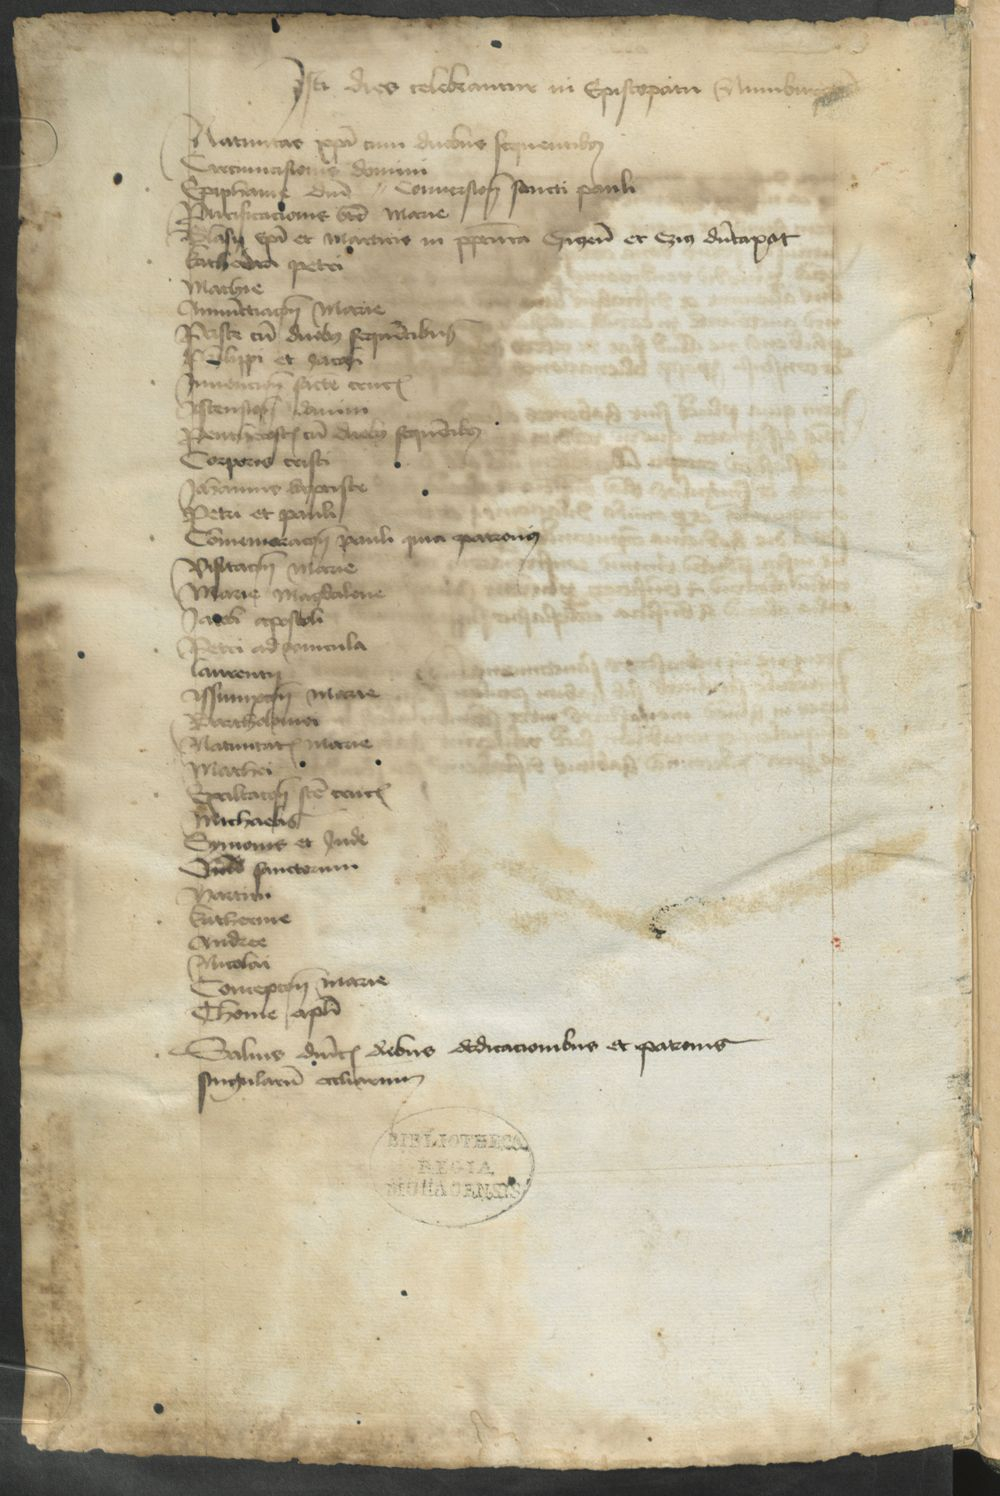 Isti dies celebrantur in Episcopatu
Natiuitas xpi cum duobus sequentibus
Circumcisionis domini
Epiphanie dni Conuersionis sancti pauli
Purificacionis bte Marie
Blasij epi et Martiris in et
kathedra petri
Mathie
Annunctiacionis Marie
Pasce cu duobus sequentibus
Philippi et Jacobi
Inuencionis sacte crucis
Ascensionis domini
Penthecostes cu duobus sequentibus
Corporis cristi
Johannis baptiste
Petri et pauli
Comemoracionis pauli quia patronus
Visitacionis Marie
Marie Magdalene
Jacobi apostoli
Petri ad vincula
laurentij
Assumpcionis Marie
Bartholomei
Natiuitatis Marie
Mathei
Exaltacionis scte crucis
Michaelis
Symonis et Jude
Omniu sanctorum
Martini
katherine
Andree
Nicolai
Concepcionis Marie
Thome apli
Saluis diebus dedicacionibus et patronis
singularum eccliarum
BIBLIOTHECA
REGIA
MONACENSIS